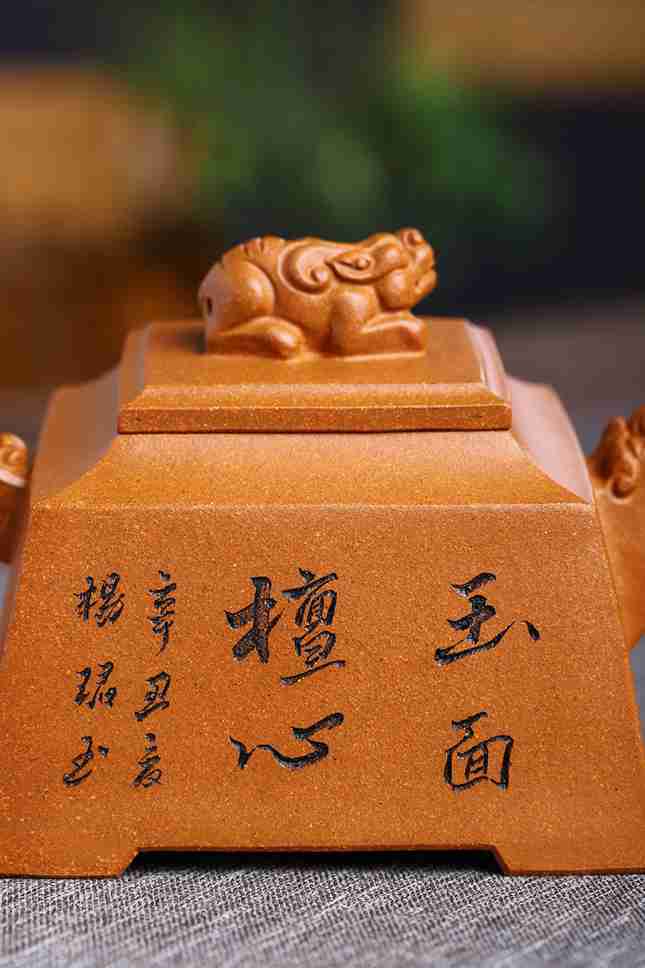 玉面
檀心
辛丑夏
楊 玉